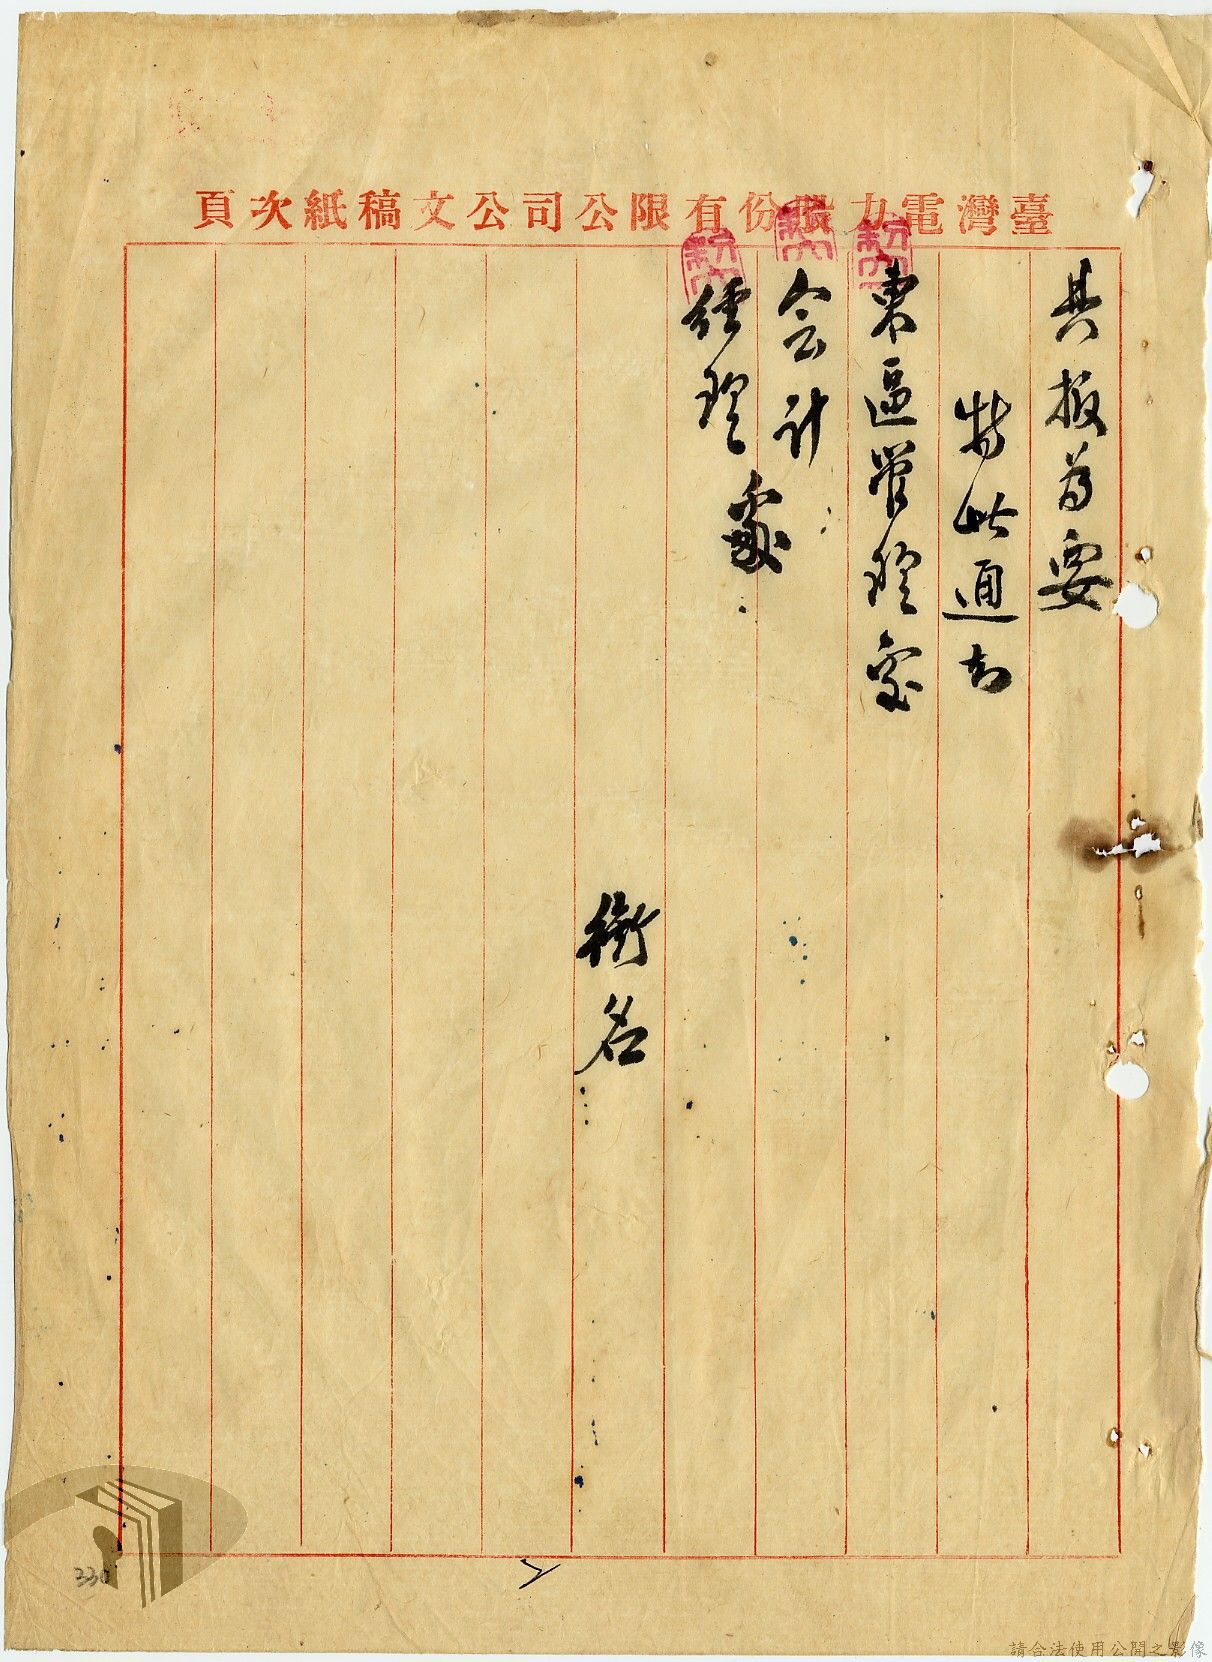 臺灣電力股份有限公司公文稿紙次頁
具报为要
特此通知
東區管理室
会计
經理處
銜名
330
請合法使用公開之影像